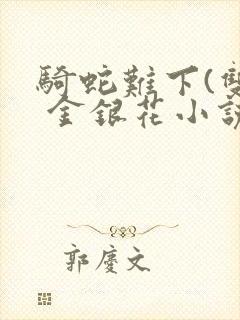 騎蛇難下(雙
金銀花小說
郭慶文